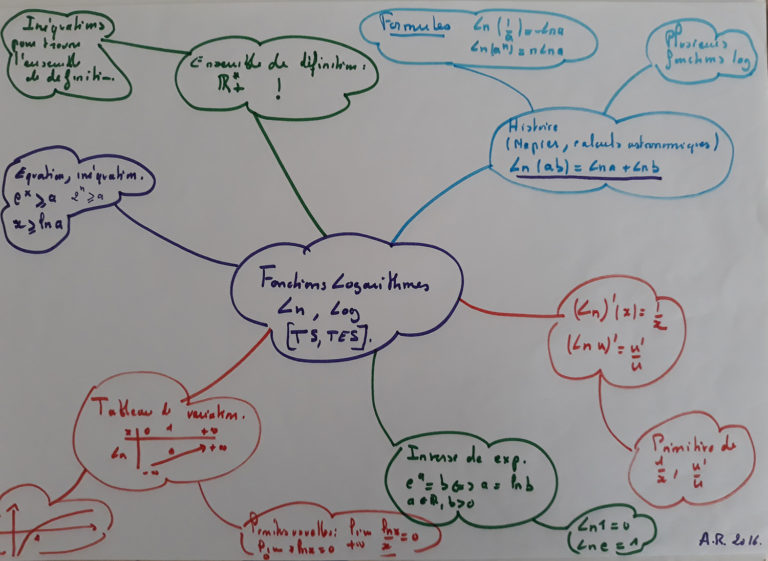 Inéquations
pour trouver
l'ensemble
de définiti-.
Ensemble de définition.
ℝ*+ !
Formules Ln(1/a)=-Lna
Ln(aⁿ)=nLna
Plusieurs
fonctions log
Histoire
(Napier, calculs astronomiques)
Ln(ab)=Lna+Lnb
Equation, inéquation.
eˣ⩾a 2ⁿ⩾a
x⩾lna
Fonctions Logarithmes
Ln, Log
[TS, TES].
(Ln)'(x)=1/x
(Ln u)'=u'/u
Primitive de
1/x, u'/u
Tableau de variation.
x 0 1 +∞
Ln -∞ 0 +∞
1
Inverse de exp.
eᵃ=b⇔a=lnb
a∈ℝ, b>0
Ln1=0
Lne=1
lim lnx/x=0
+∞
lim xlnx=0
0
A.R. 2016.